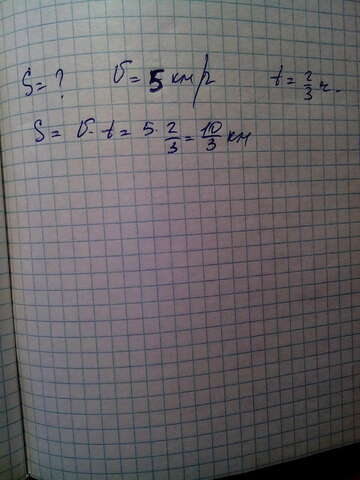 S = ? V = 5 км/ч t = 2/3 ч.
S = V · t = 5 · 2/3 = 10/3 км